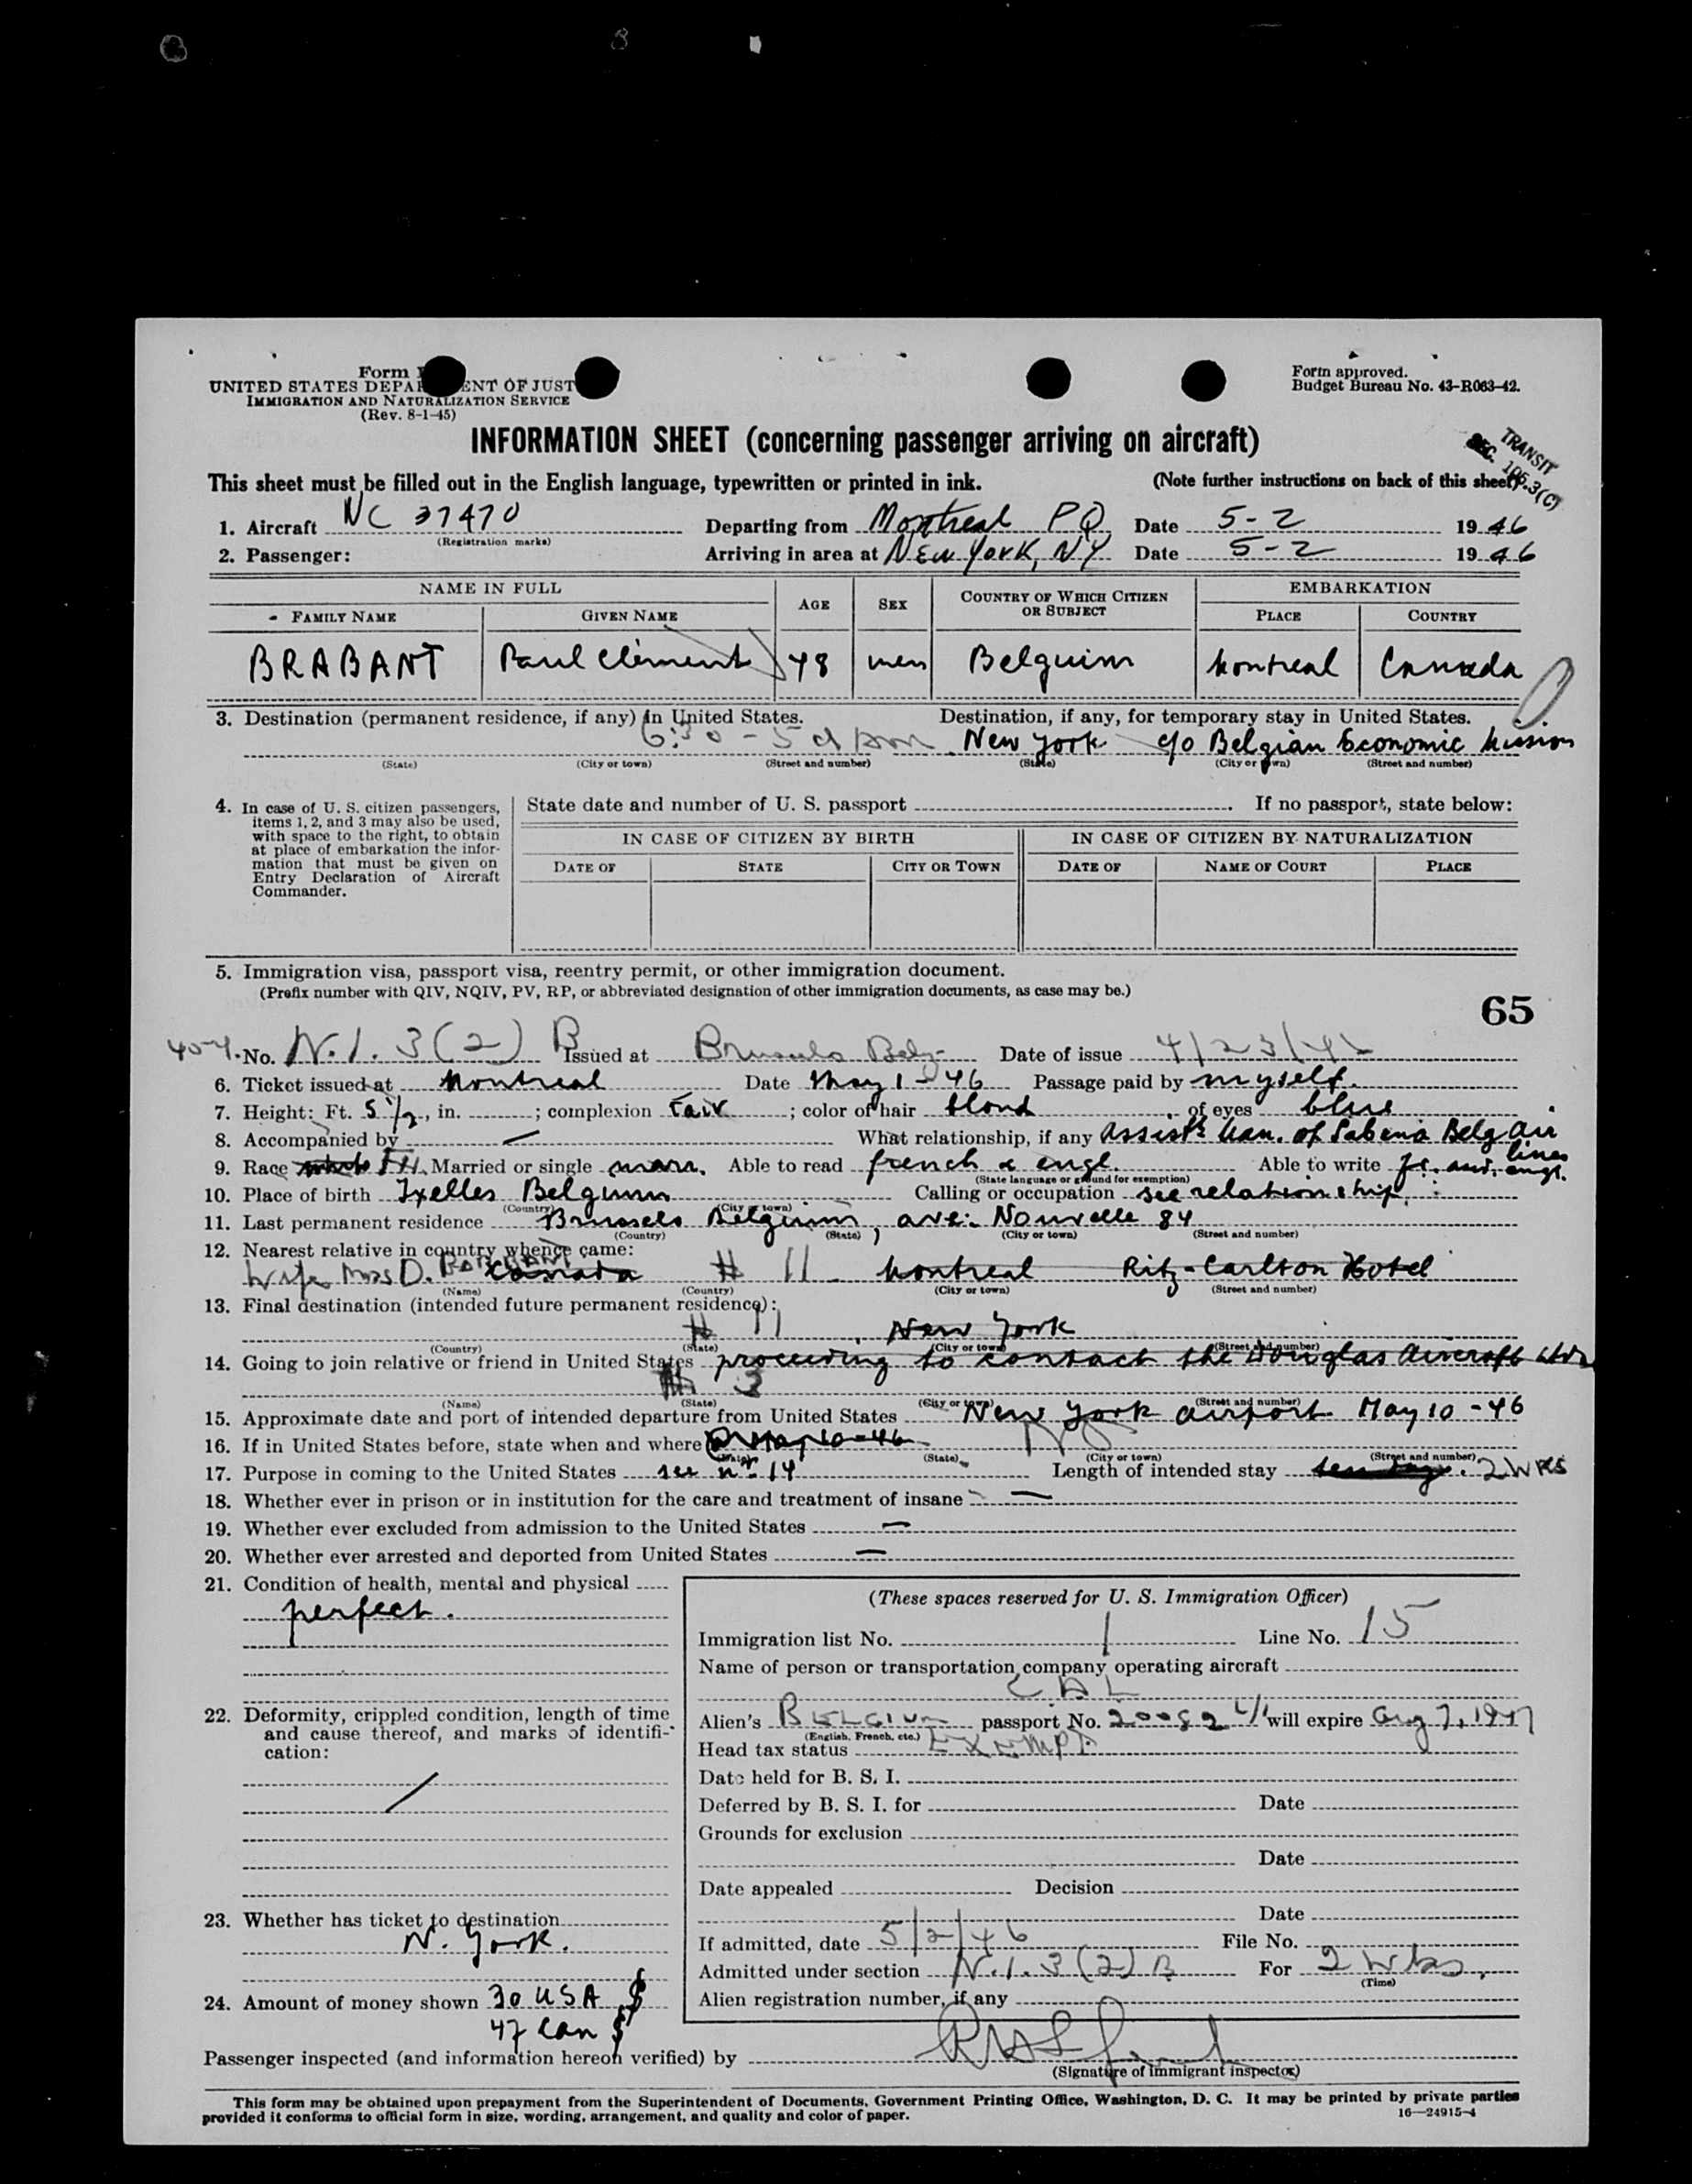 Form
UNITED STATES DEPA ENT OF JUST
IMMIGRATION AND NATURALIZATION SERVICE
(Rev. 8-1-45)
Form approved.
Budget Bureau No. 43-R063-42.
INFORMATION SHEET (concerning passenger arriving on aircraft)
TRANSIT
SEC. 105.3(C)
This sheet must be filled out in the English language, typewritten or printed in ink. (Note further instructions on back of this sheet)
1. Aircraft NC 37470 Departing from Montreal PQ Date 5-2 1946
(Registration marks)
2. Passenger: Arriving in area at NEW YORK, NY Date 5-2 1946
NAME IN FULL AGE SEX COUNTRY OF WHICH CITIZEN OR SUBJECT EMBARKATION
FAMILY NAME GIVEN NAME PLACE COUNTRY
BRABANT Paul Clément 48 men Belguim Montreal Canada
3. Destination (permanent residence, if any) in United States. Destination, if any, for temporary stay in United States.
6:30 - New York c/o Belgian Economic Mission
(State) (City or town) (Street and number) (State) (City or town) (Street and number)
4. In case of U. S. citizen passengers, items 1, 2, and 3 may also be used, with space to the right, to obtain at place of embarkation the information that must be given on Entry Declaration of Aircraft Commander.
State date and number of U. S. passport . If no passport, state below:
IN CASE OF CITIZEN BY BIRTH IN CASE OF CITIZEN BY NATURALIZATION
DATE OF STATE CITY OR TOWN DATE OF NAME OF COURT PLACE
5. Immigration visa, passport visa, reentry permit, or other immigration document.
(Prefix number with QIV, NQIV, PV, RP, or abbreviated designation of other immigration documents, as case may be.)
65
No. N.I. 3(2) B Issued at Brussels Belg Date of issue 4/23/46
6. Ticket issued at Montreal Date May 1-46 Passage paid by myself.
7. Height: Ft. 5 1/2, in. ; complexion Fair ; color of hair blond , of eyes blue
8. Accompanied by — What relationship, if any Assist. Man. of Sabena Belg Air lines
9. Race Married or single marr. Able to read french & engl. Able to write fr. and. engl.
(State language or ground for exemption)
10. Place of birth Ixelles Belguim Calling or occupation see relationship.
(Country) (City or town)
11. Last permanent residence Brussels Belguim, ave: Nouvelle 84
(Country) (State) (City or town) (Street and number)
12. Nearest relative in country whence came:
Wife Mrs D. BRABANT Canada # 11 Montreal Ritz-Carlton Hotel
(Name) (Country) (City or town) (Street and number)
13. Final destination (intended future permanent residence):
# 11 New York
(Country) (State) (City or town) (Street and number)
14. Going to join relative or friend in United States proceeding to contact the Douglas Aircraft
3
(Name) (State) (City or town) (Street and number)
15. Approximate date and port of intended departure from United States New York airport May 10-46
16. If in United States before, state when and where May 10-46 NO
(Date) (State) (City or town) (Street and number)
17. Purpose in coming to the United States see n° 14 Length of intended stay ten days. 2 WKS
18. Whether ever in prison or in institution for the care and treatment of insane —
19. Whether ever excluded from admission to the United States —
20. Whether ever arrested and deported from United States —
21. Condition of health, mental and physical
perfect.
22. Deformity, crippled condition, length of time and cause thereof, and marks of identification:
/
23. Whether has ticket to destination
N. York.
24. Amount of money shown 30 USA $
47 Can $
(These spaces reserved for U. S. Immigration Officer)
Immigration list No. 1 Line No. 15
Name of person or transportation company operating aircraft
Alien's BELGIUM passport No. will expire Aug 7, 1947
(English, French, etc.)
Head tax status EXEMPT
Date held for B. S. I.
Deferred by B. S. I. for Date
Grounds for exclusion
Date
Date appealed Decision
Date
If admitted, date 5/2/46 File No.
Admitted under section N.I. 3(2) B For 2 Wks.
(Time)
Alien registration number, if any
Passenger inspected (and information hereon verified) by
(Signature of immigrant inspector)
This form may be obtained upon prepayment from the Superintendent of Documents, Government Printing Office, Washington, D. C. It may be printed by private parties
provided it conforms to official form in size, wording, arrangement, and quality and color of paper. 16—24915-4